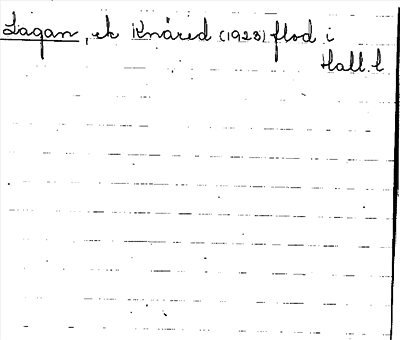 Lagan, ek Knäred (1928) flod i
Hall. l